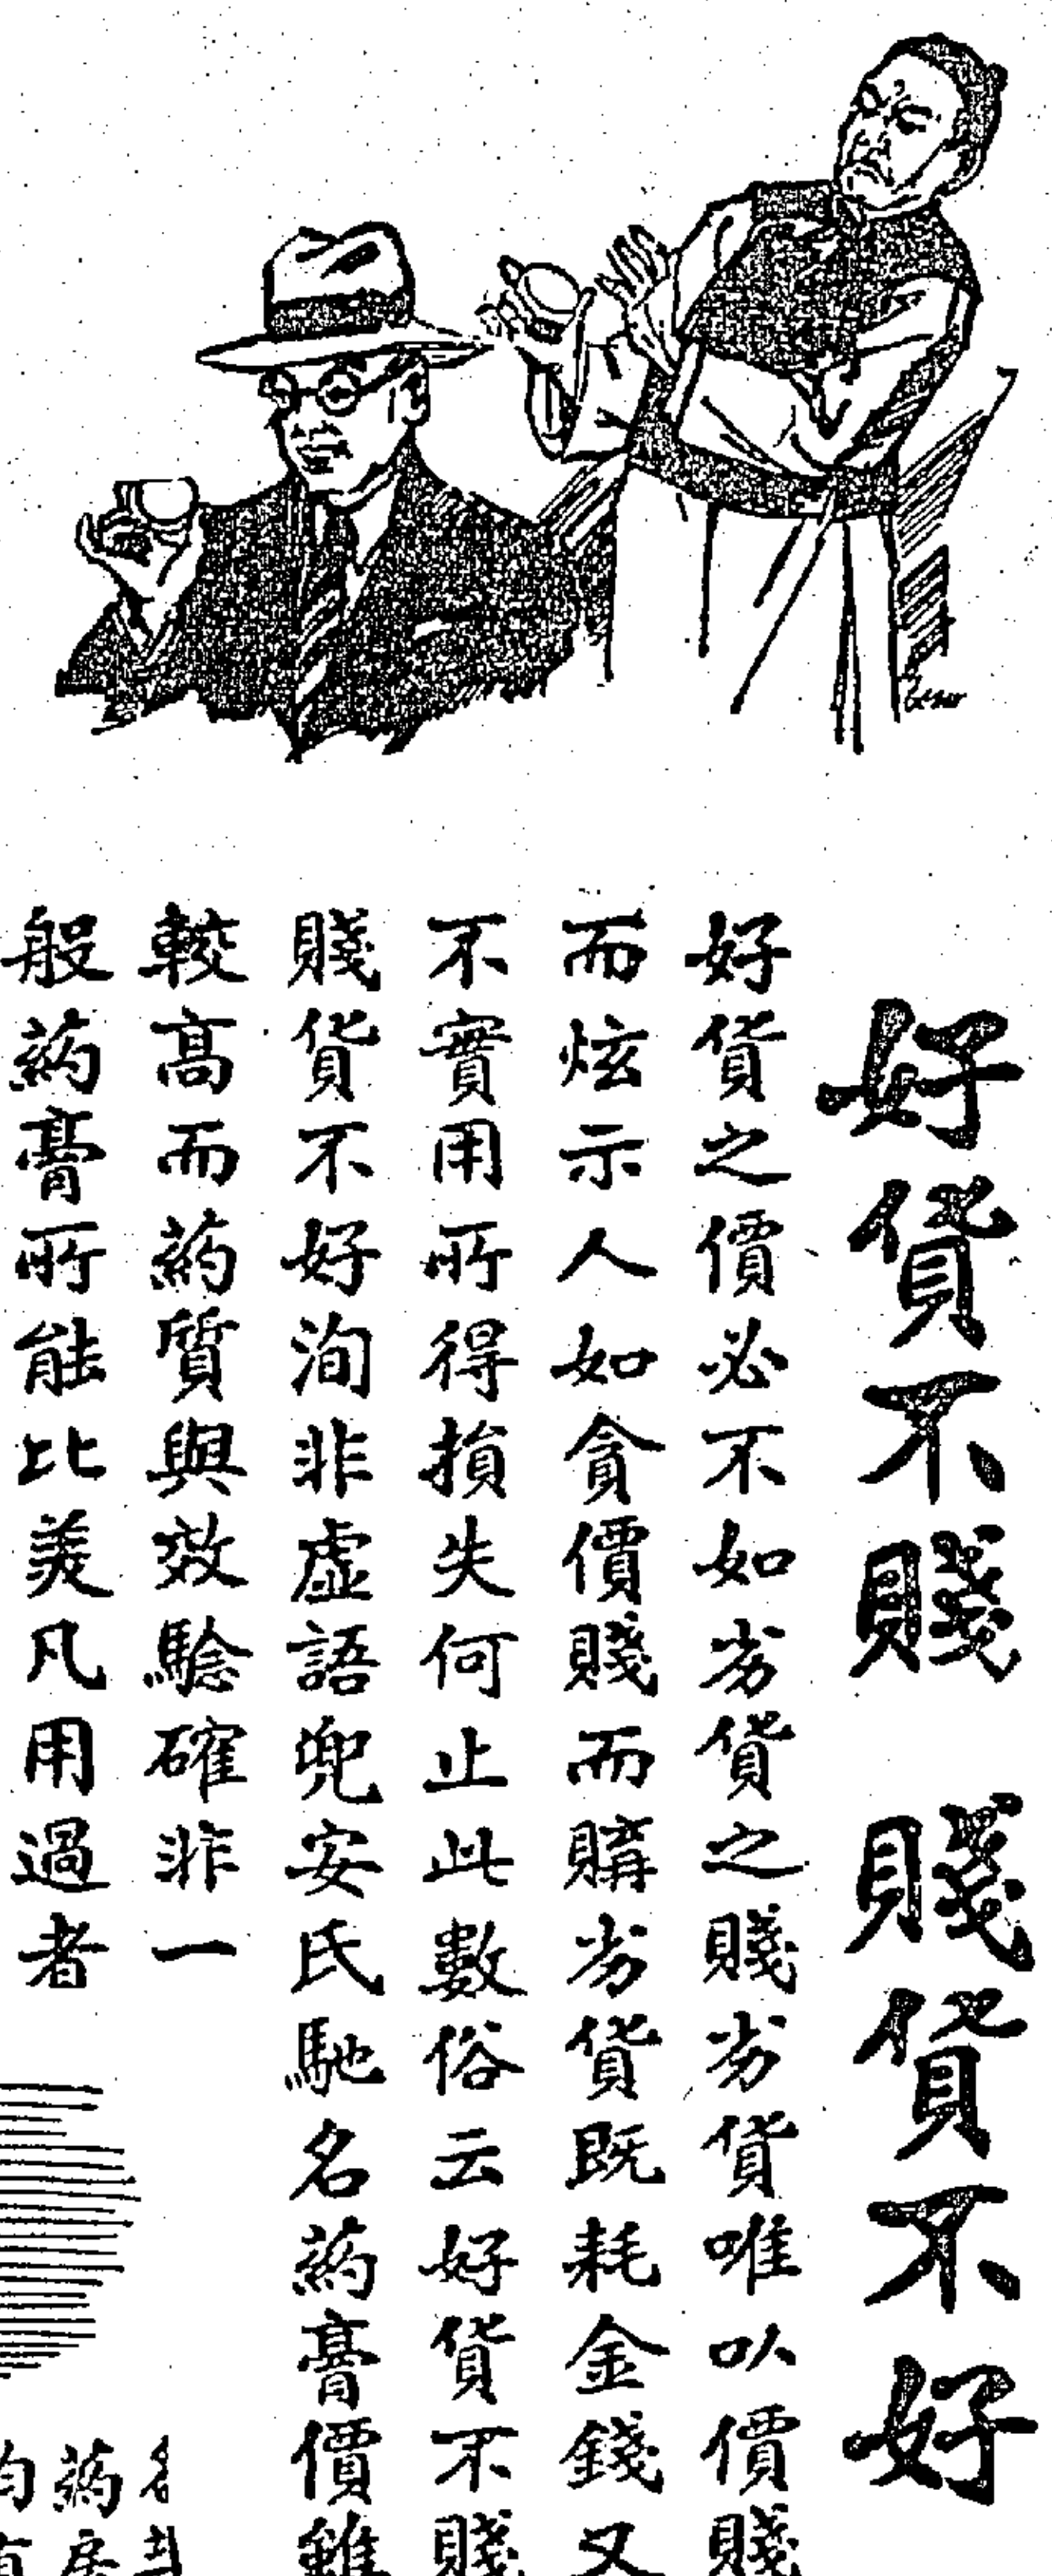 好貨不賤 賤貨不好
好貨之價必不如劣貨之賤劣貨唯以價賤
而炫示人如貪價賤而購劣貨既耗金錢又
不實用所得損失何止此數俗云好貨不賤
賤貨不好洵非虛語兜安氏馳名葯膏價雖
較高而葯質與效驗確非一
般葯膏所能比美凡用過者
葯房